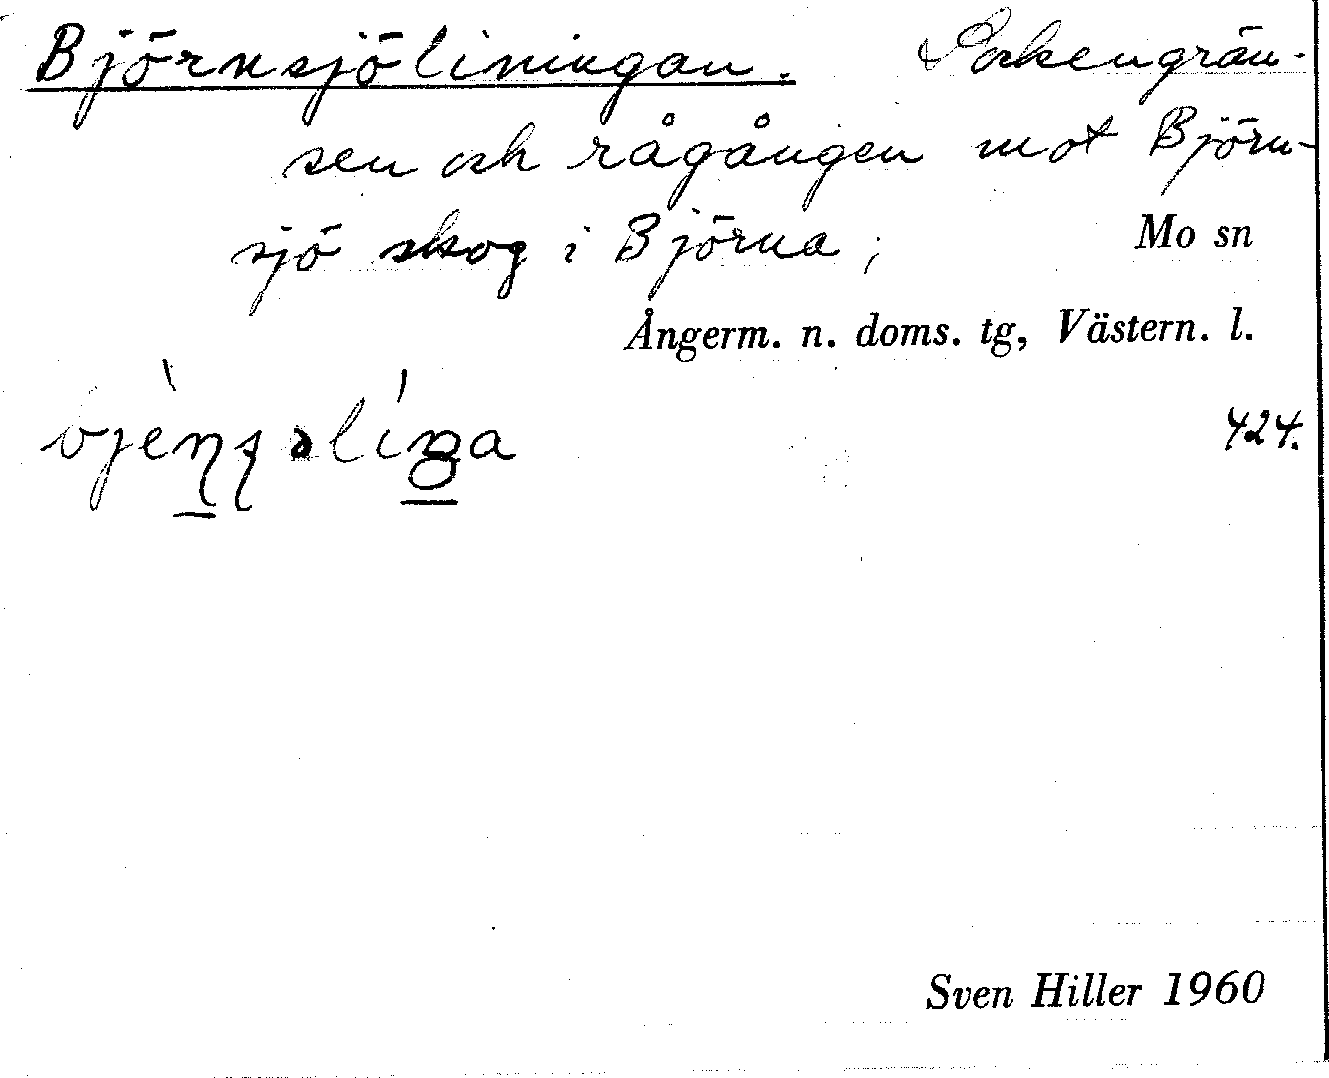 Björnsjöliningan. Sockengrän-
sen och rågången mot Björn-
sjö skog i Björna;
Mo sn
Ångerm. n. doms. tg, Västern. l.
424.
Sven Hiller 1960